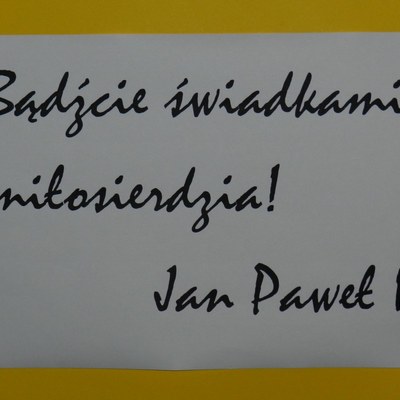 Bądźcie świadkami
miłosierdzia!
Jan Paweł I